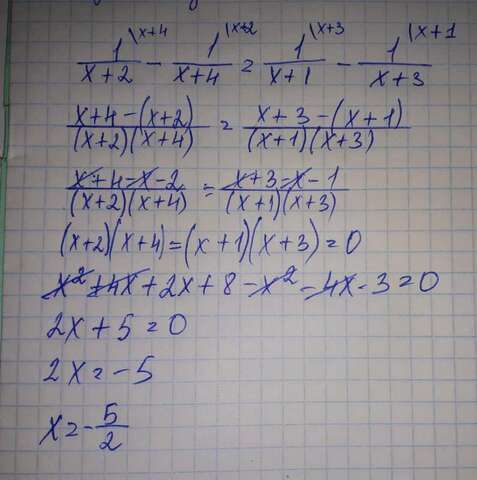 1\x+4 / x+2 - 1\x+2 / x+4 = 1\x+3 / x+1 - 1\x+1 / x+3
x+4-(x+2) / (x+2)(x+4) = x+3-(x+1) / (x+1)(x+3)
x+4-x-2 / (x+2)(x+4) = x+3-x-1 / (x+1)(x+3)
(x+2)(x+4)=(x+1)(x+3)=0
x²+4x+2x+8-x²-4x-3=0
2x+5=0
2x=-5
x=-5/2